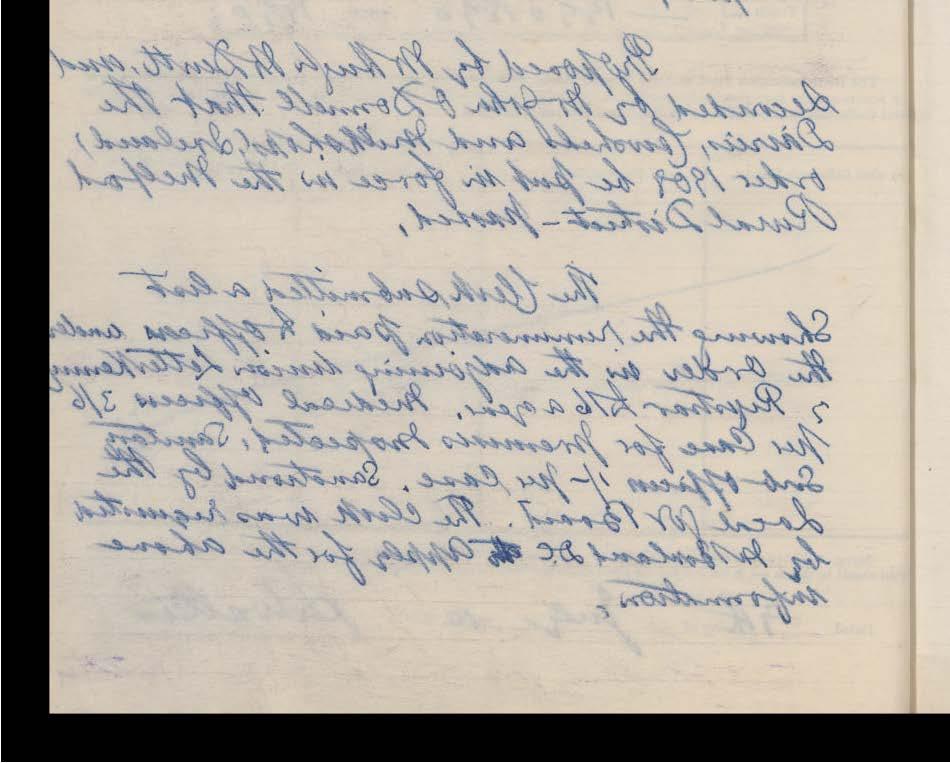 Proposed by Mr Hugh McDevitt, and
Seconded by Mr John O Donnell that the
Dairies, Cowsheds and Milkshops (Ireland)
order 1908 be put in force in the Milford
Rural District – passed,
The Clerk submitted a list
Showing the remuneration paid to Officers under
the Order in the adjoining Union Letterkenny
Registrar £16 a year, Medical Officers 3/6
per Case for premises inspected, Sanitary
Sub officers 1/- per Case. Sanctioned by the
Local Gov Board. The Clerk was requested
by D.C. to apply for the above
information,